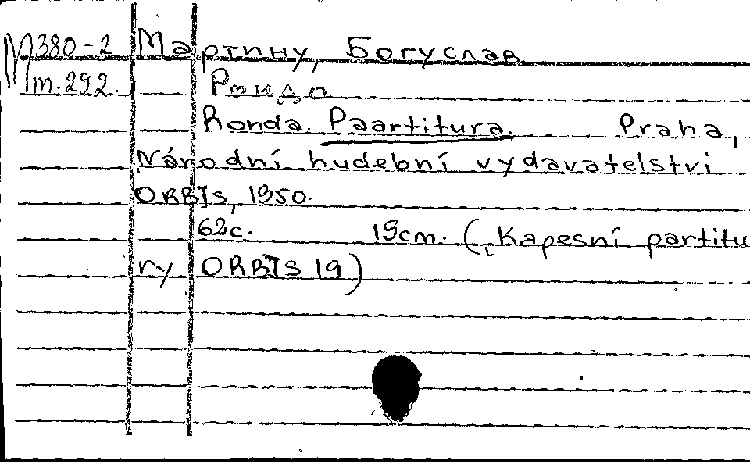 M380-2 Мартину, Богуслав
m.292. Рондо
Ronda. Paartitura. Praha,
Národní hudební vydavatelstvi
ORBIS, 1950.
62c. 19cm. (Kapesní partitu
ry ORBIS 19)